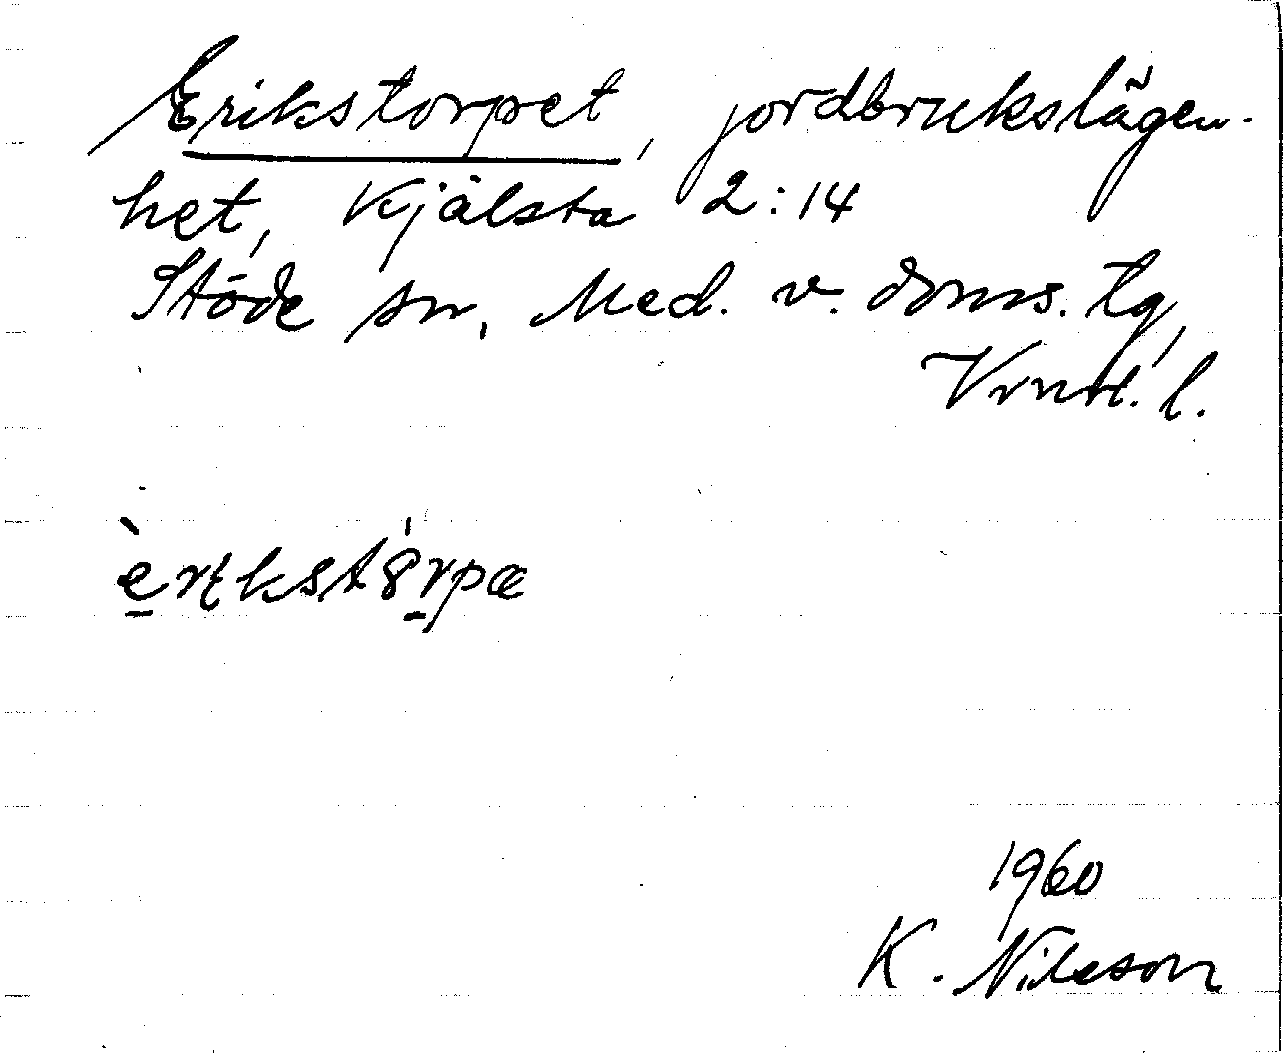 Erikstorpet, jordbrukslägen-
het, Kjälsta 2:14
Stöde sn, Med. v. doms. tg,
Vrnl. l.
1960
K. Nilsson